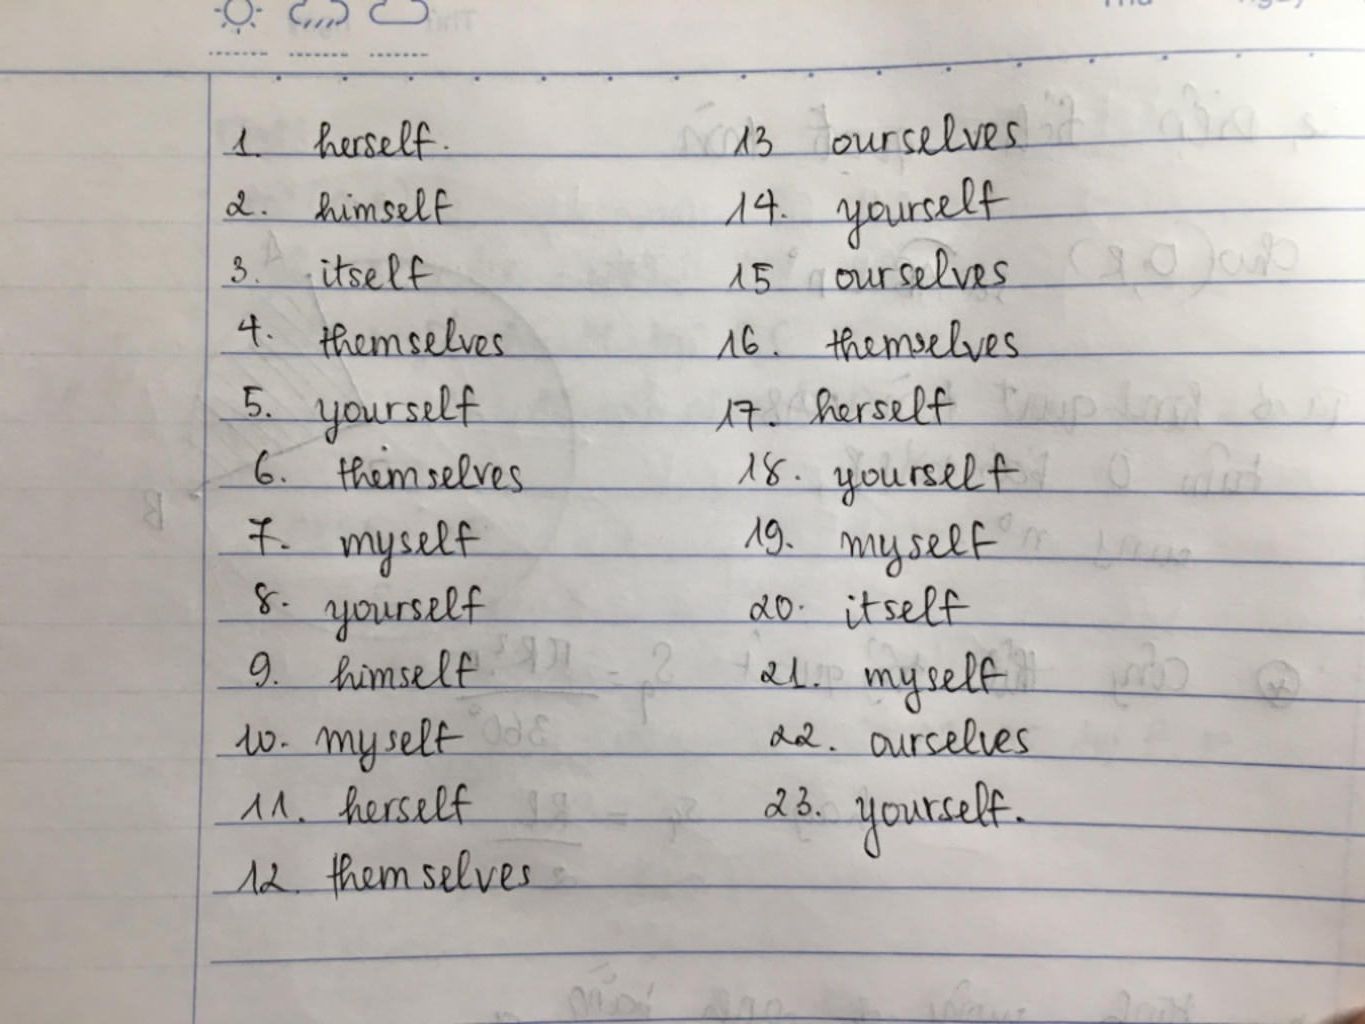 1. herself.
2. himself
3. itself
4. themselves
5. yourself
6. themselves
7. myself
8. yourself
9. himself
10. myself
11. herself
12. themselves
13 ourselves
14. yourself
15 ourselves
16. themselves
17. herself
18. yourself
19. myself
20. itself
21. myself
22. ourselves
23. yourself.